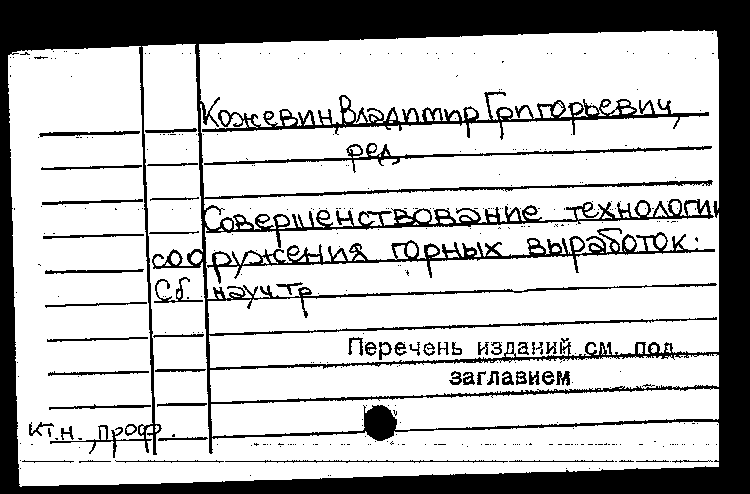 Кожевин, Владимир Григорьевич,
ред.
Совершенствование технологии
сооружения горных выработок:
Сб. науч. тр.
Перечень изданий см. под
заглавием
к.т.н., проф.